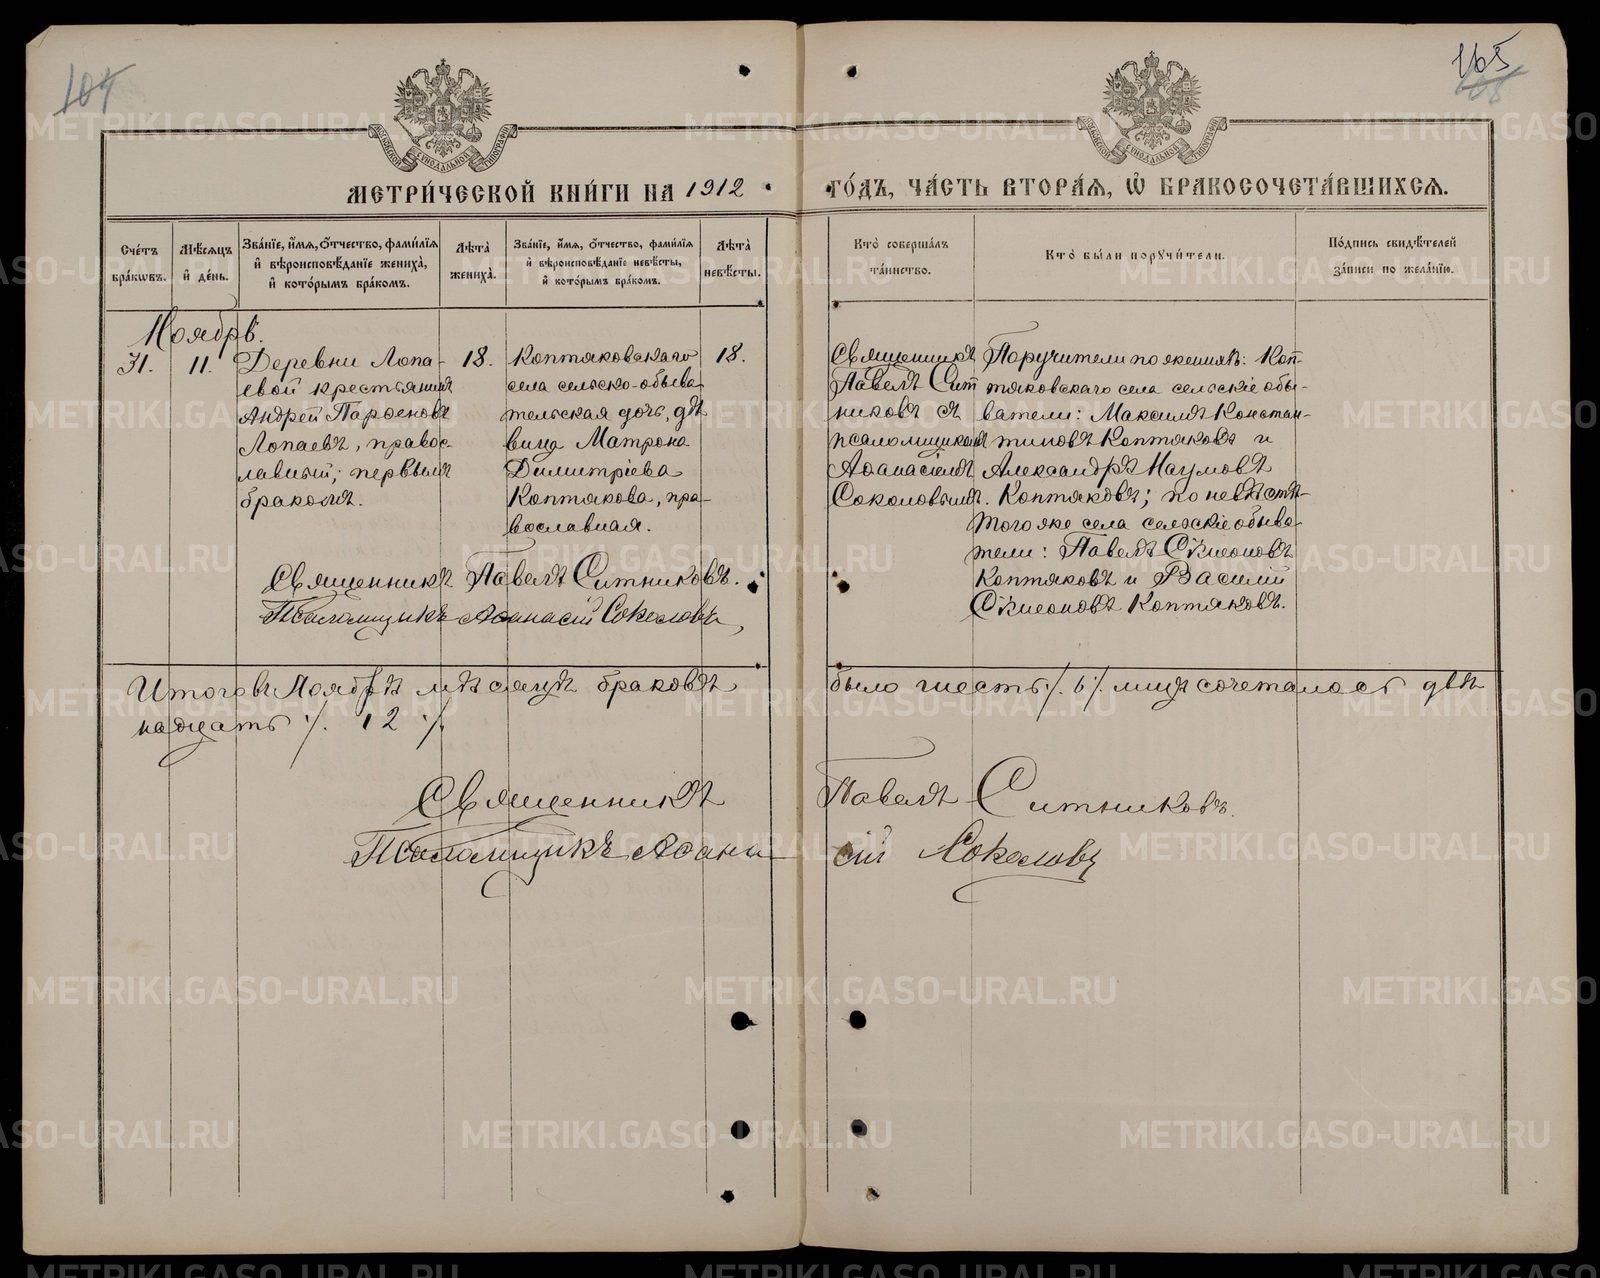 104
165
108
МОСКОВСКОЙ СѴНОДАЛЬНОЙ ТИПОГРАФІИ
МОСКОВСКОЙ СѴНОДАЛЬНОЙ ТИПОГРАФІИ
МЕТРИ́ЧЕСКОЙ КНИ́ГИ НА 1912
ГО́ДЪ, ЧА́СТЬ ВТОРА́Я, Ѿ БРАКОСОЧЕТА́ВШИХСЯ.
Сче́тъ
бра́кѡвъ.
Мѣ́сяцъ
и҆ де́нь.
Зва́нїе, и҆́мя, ѻ҆́тчество, фами́лїя
и҆ вѣроисповѣ́данїе жениха̀,
и҆ кото́рымъ бра́комъ.
Лѣ́та̀
жениха̀.
Зва́нїе, и҆́мя, ѻ҆́тчество, фами́лїя
и҆ вѣроисповѣ́данїе невѣ́сты,
и҆ кото́рымъ бра́комъ.
Лѣ́та̀
невѣ́сты.
Кто̀ соверша́лъ
та́инство.
Кто̀ бы́ли порꙋчи́тели.
По́дпись свидѣ́телей
за́писи по жела́нїю.
Ноябрь.
31.
11.
Деревни Лопа-
евой крестьянинъ
Андрей Парѳеновъ
Лопаевъ, правос-
лавный; первымъ
бракомъ.
18.
Коптяковскаго
села сельско-обыва-
тельская дочь, дѣ-
вица Матрона
Димитріева
Коптякова, пра-
вославная.
18.
Священникъ
Павелъ Сит-
никовъ съ
псаломщикомъ
Аѳанасіемъ
Соколовымъ.
Поручители по женихѣ: Коп-
тяковскаго села сельскіе обы-
ватели: Максимъ Констан-
тиновъ Коптяковъ и
Александръ Наумовъ
Коптяковъ; по невѣстѣ-
того же села сельскіе обыва-
тели: Павелъ Сѵмеоновъ
Коптяковъ и Василій
Сѵмеоновъ Коптяковъ.
Священникъ Павелъ Ситниковъ.
Псаломщикъ Аѳанасій Соколовъ
Итого въ Ноябрѣ мѣсяцѣ браковъ было шесть ·/. 6 ·/. лицъ сочеталось двѣ-
надцать ·/. 12 ·/.
Священникъ Павелъ Ситниковъ.
Псаломщикъ Аѳанасій Соколовъ
METRIKI.GASO-URAL.RU